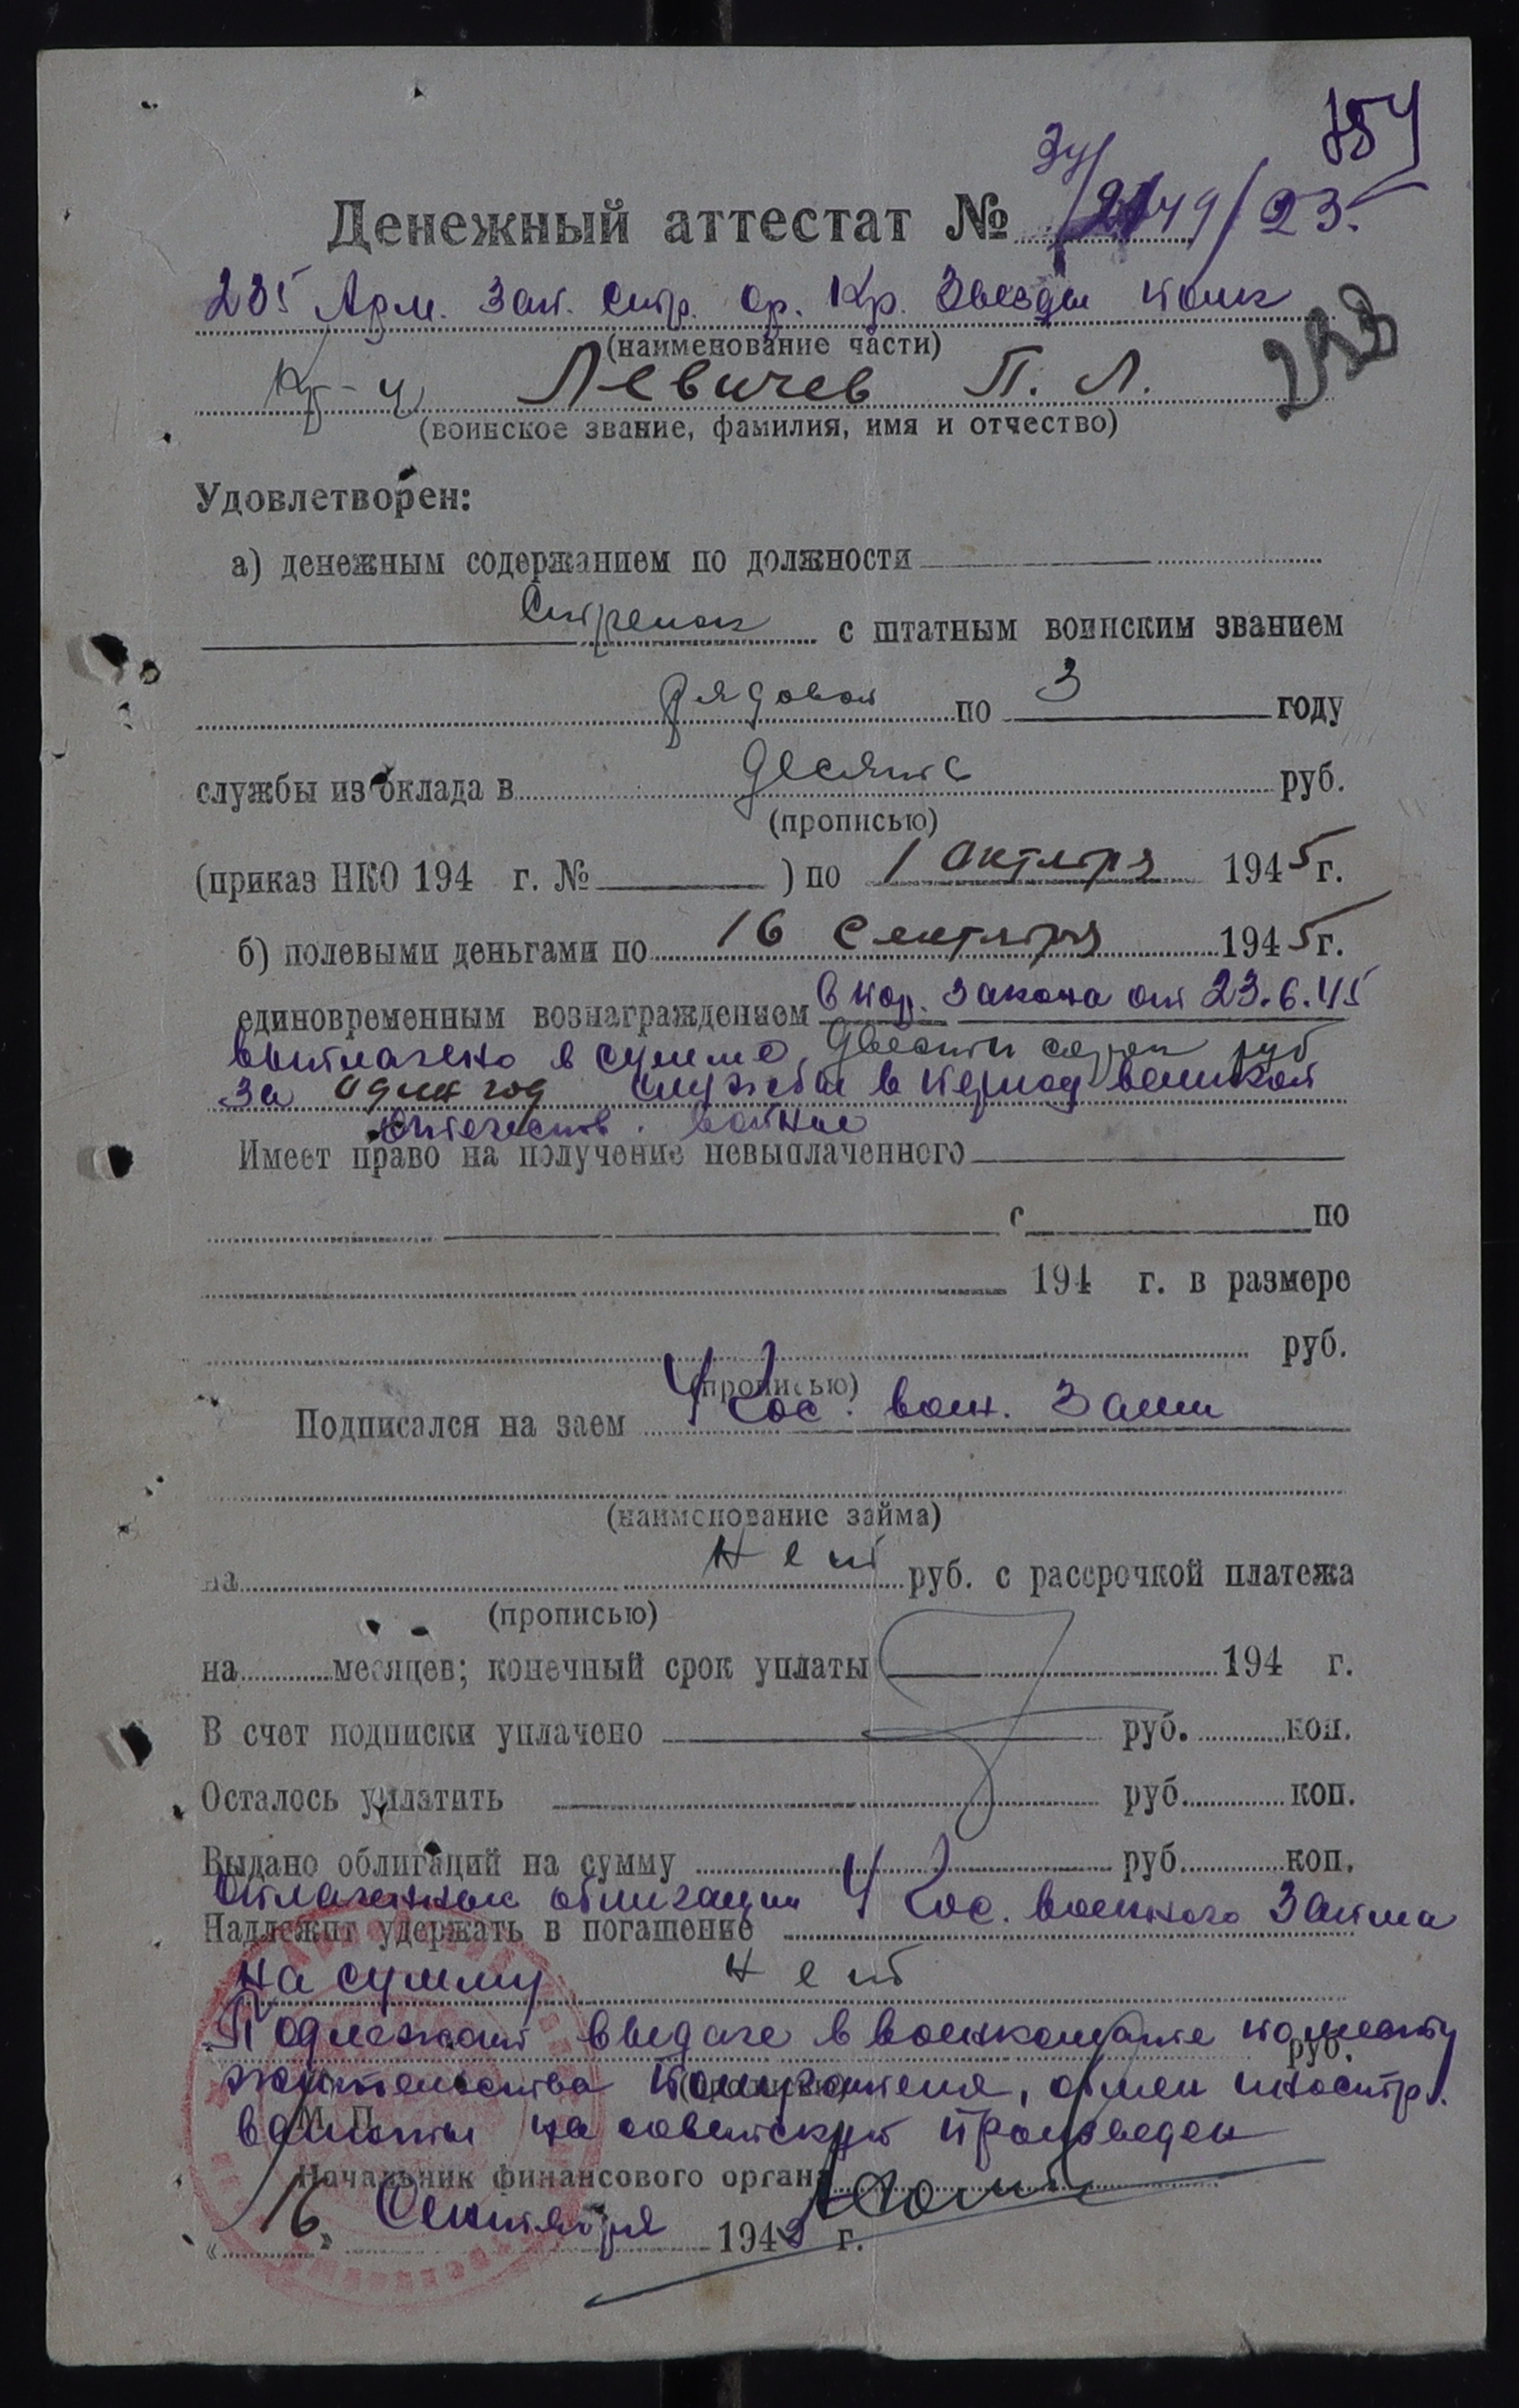 754
Денежный аттестат № 34/2149/23
235 Арм. Зап. Стр. Ор. Кр. Звезды полк
(наименование части)
Кр-ц Левичев П. Л.
(воинское звание, фамилия, имя и отчество)
Удовлетворен:
а) денежным содержанием по должности
Стрелок с штатным воинским званием
рядовой по 3 году
службы из оклада в десять руб.
(прописью)
(приказ НКО 194 г. № ) по 1 октября 1945 г.
б) полевыми деньгами по 16 сентября 1945 г.
единовременным вознаграждением в пор. закона от 23.6.45
выплачено в сумме двести сорок руб
за один год службы в период великой
отечеств. войны
Имеет право на получение невыплаченного
с по
194 г. в размере
руб.
(прописью)
Подписался на заем 4 Гос. воен. Займ
(наименование займа)
на нет руб. с рассрочкой платежа
(прописью)
на месяцев; конечный срок уплаты 194 г.
В счет подписки уплачено руб. коп.
Осталось уплатить руб. коп.
Выдано облигаций на сумму руб. коп.
Оплаченные облигации 4 Гос. военного Займа
Надлежит удержать в погашение
на сумму нет
Подлежат выдаче в военкомате по месту
руб.
жительства получателя, обмен иностр.
М. П.
валюты на советскую произведен
Начальник финансового органа
«16» Сентября 1945 г.